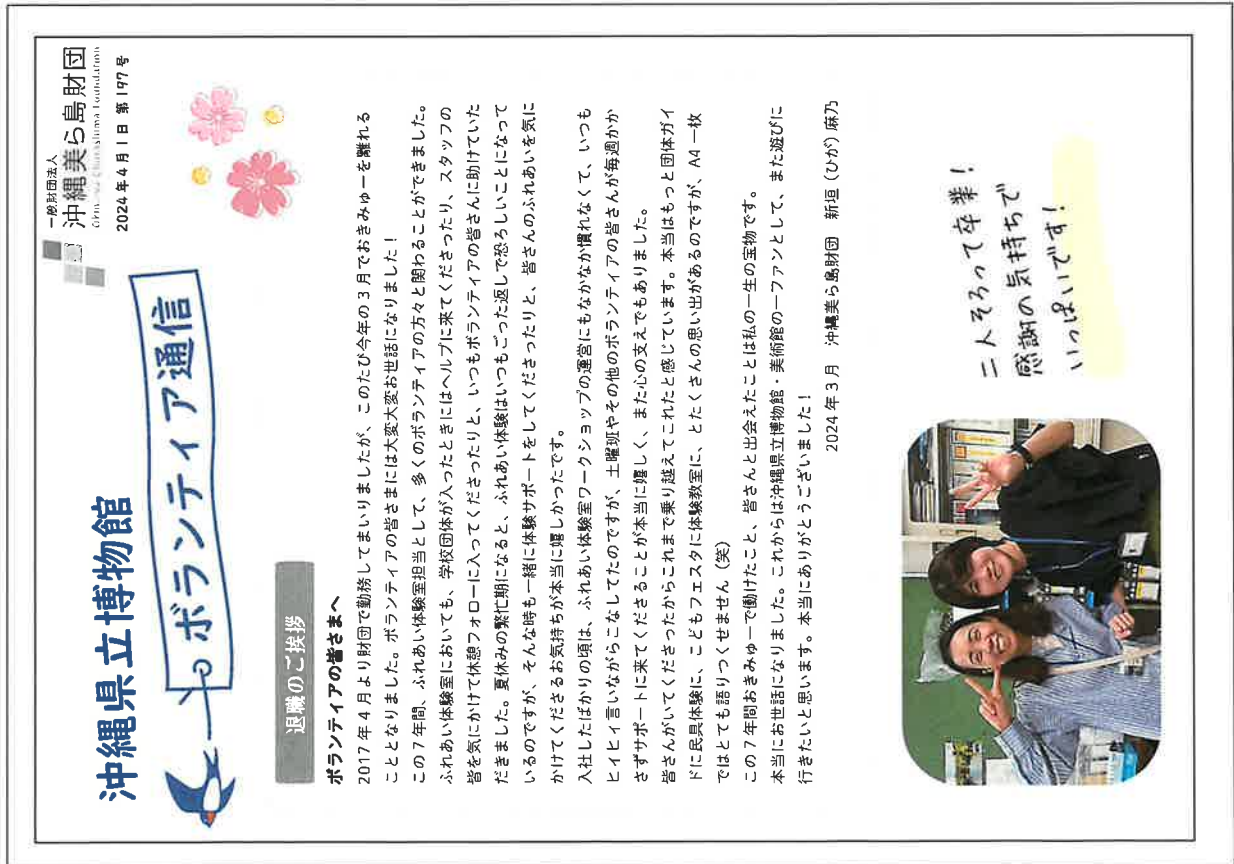 沖縄県立博物館
ボランティア通信
一般財団法人
沖縄美ら島財団
Okinawa Churashima Foundation
2024年4月1日 第197号
退職のご挨拶
ボランティアの皆さまへ
2017年4月より財団で勤務してまいりましたが、このたび今年の3月でおきみゅーを離れる
こととなりました。ボランティアの皆さまには大変大変お世話になりました!
この7年間、ふれあい体験室担当として、多くのボランティアの方々と関わることができました。
ふれあい体験室においても、学校団体が入ったときにはヘルプに来てくださったり、スタッフの
皆を気にかけて休憩フォローに入ってくださったりと、いつもボランティアの皆さんに助けていた
だきました。夏休みの繁忙期になると、ふれあい体験はいつもごった返しで恐ろしいことになって
いるのですが、そんな時も一緒に体験サポートをしてくださったりと、皆さんのふれあいを気に
かけてくださるお気持ちが本当に嬉しかったです。
入社したばかりの頃は、ふれあい体験室ワークショップの運営にもなかなか慣れなくて、いつも
ヒイヒイ言いながらこなしてたのですが、土曜班やその他のボランティアの皆さんが毎週かか
さずサポートに来てくださることが本当に嬉しく、また心の支えでもありました。
皆さんがいてくださったからこれまで乗り越えてこれたと感じています。本当はもっと団体ガイ
ドに民具体験に、こどもフェスタに体験教室に、とたくさんの思い出があるのですが、A4一枚
ではとても語りつくせません(笑)
この7年間おきみゅーで働けたこと、皆さんと出会えたことは私の一生の宝物です。
本当にお世話になりました。これからは沖縄県立博物館・美術館の一ファンとして、また遊びに
行きたいと思います。本当にありがとうございました!
2024年3月 沖縄美ら島財団 新垣(ひが)麻乃
二人そろって卒業!
感謝の気持ちで
いっぱいです!